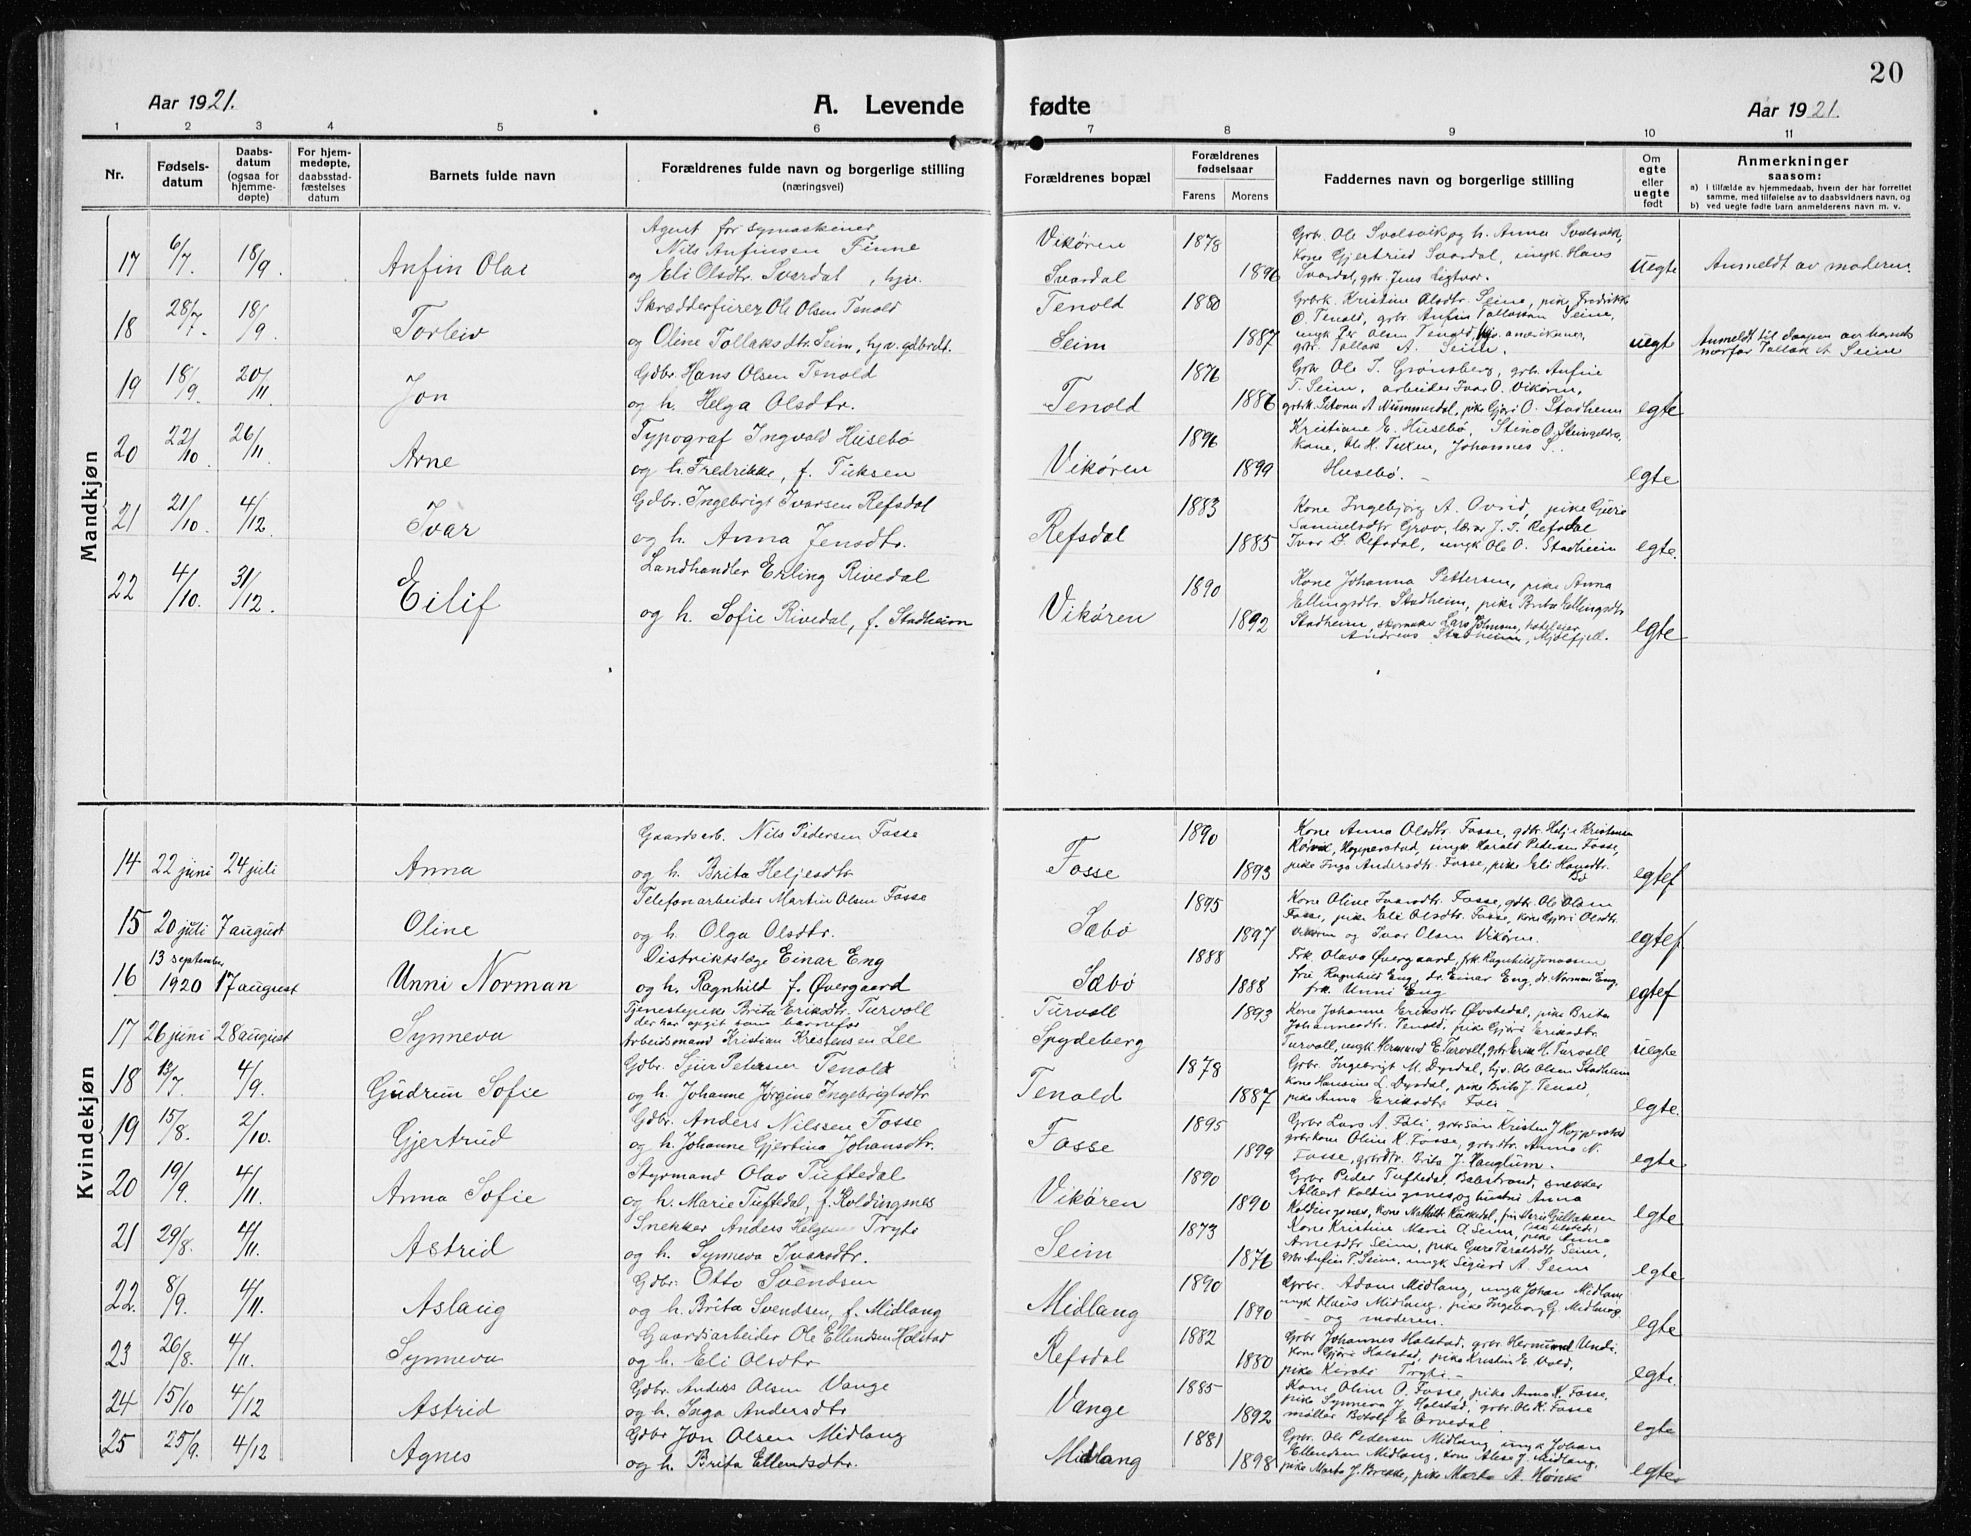 20
Aar 1921. A. Levende fødte Aar 1921.
1 2 3 4 5 6 7 8 9 10 11
Nr. Fødselsdatum Daabsdatum (ogsaa for hjemmedøpte) For hjemmedøpte, daabsstadfæstelses datum Barnets fulde navn Forældrenes fulde navn og borgerlige stilling (næringsvei) Forældrenes bopæl Forældrenes fødselsaar Farens Morens Faddernes navn og borgerlige stilling Om egte eller uegte født Anmerkninger saasom:
a) i tilfælde av hjemmedaab, hvem der har forrettet samme, med tilføielse av to daabsvidners navn, og
b) ved uegte fødte barn anmelderens navn m. v.
Mandkjøn
17 6/7. 18/9. Anfin Olai Agent for symaskiner Nils Anfinssen Finne Vikøren 1878 Grbr. Ole Svolsvik og h. Anna Svolsvik,
og Eli Olsdtr. Svardal, hjv. Svardal 1896 Kone Gjertrud Svardal, ungk. Hans Svardal, gbr. Jens Ligtvor. uegte Anmeldt av moderen.
18 28/7. 18/9. Torleiv Skrædderfurer Ole Olsen Tenold Tenold 1880 Grbrk. Kristine Olsdtr. Seim, pike Fredrikke
O. Tenold, grbr. Anfin Tollakson Seim,
og Oline Tollaksdtr. Seim, hjv. gdbrdt. Seim 1887 ungk Per Olsen Tenold, amerikaner, grbr. Tollak A. Seim. uegt Anmeldt til daapen av barnets morfar Tollak A Seim
19 18/9. 20/11. Jon Gdbr. Hans Olsen Tenold 1876 Grbr Ole J. Grønsberg, grbr. Anfin
T. Seim, arbeider Ivar O. Vikøren,
og h. Helga Olsdtr. Tenold 1886 grbrk. A Nummedal, pike Gjøri O. Stadheim egte
20 22/10. 26/11. Arne Typograf Ingvald Husebø 1896 Kristiane E. Husebø, Stina O.
Kone, Ole M. Tuxen, Johannes S.
og h. Fredrikke, f. Tuksen Vikøren 1899 Husebø. egte
21 21/10. 4/12. Ivar Gdbr. Ingebrigt Ivarsen Refsdal 1883 Kone Ingebjørg A. Ovrid, pike Guro
Samuelsdtr Grov, lærer J. I. Refsdal
og h. Anna Jensdtr. Refsdal 1885 Ivar I. Refsdal, ungk Ole O. Stadheim egte.
22 4/10. 31/12. Eilif Landhandler Erling Rivedal 1890 Kone Johanna Pettersen, pike Anna
Ellingsdtr. Stadheim, pike Brita Ellingsdtr
og h. Sofie Rivedal, f. Stadheim Vikøren 1892 Stadheim, skomaker Lars Johnsen, hoteleier
Andreas Stadheim, Mjølfjell. egte
Kvindekjøn
14 22 juni 24 juli Anna Gaardsarb. Nils Pedersen Fosse 1890 Kone Anna Olsdtr. Fosse, gdbr. Helje Kristensen
Hopperstad, ungk Harald Pedersen Fosse,
og h. Brita Heljesdtr Fosse 1893 pike Inga Andersdtr. Fosse, pike Eli Hansdtr. Bø egtef
15 20 juli 7 august Oline Telefonarbeider Martin Olsen Fosse 1895 Kone Oline Ivarsdtr. Fosse, gdbr. Ole Olsen
Fosse, pike Eli Olsdtr. Fosse, kone Gjøri Olsdtr.
og h. Olga Olsdtr. Sæbø 1897 Vikøren og Ivar Olsen Vikøren. egtef
16 13 september 1920 17 august Unni Norman Distriktslæge Einar Eng 1888 Frk. Olava Øvergaard, frk Ragnhild Jonassen
og h. Ragnhild f. Øvergaard Sæbø 1888 frue Ragnhild Eng, dr. Einar Eng, dr. Norman Eng,
frk. Unni Eng egtef
17 26 juni 28 august Synneva Tjenestepike Brita Eriksdtr. Turvoll Turvoll 1893 Kone Johanne Eriksdtr Øvstedal, pike Brita
der har opgit som barnefar Johannesdtr. Tenold, pike Gjøri Eriksdtr.
Arbeidsmand Kristian Kristensen Lee Spydeberg Turvoll, ungk. Hermund E. Turvoll, grbr Erik H. Turvoll uegte
18 13/7 4/9. Gudrun Sofie Gdbr. Sjur Petersen Tenold 1878 Grbr. Ingebrigt M. Dyrdal, hjv. Ole Olsen Stadheim
kone Hansine L. Dyrdal, pike Brita J. Tenold,
og h. Johanne Jørgine Ingebrigtsdtr Tenold 1887 pike Anna Eriksdtr Føli egte.
19 15/8. 2/10. Gjertrud Gdbr. Anders Nilssen Fosse 1895 Grbr Lars A. Føli, grbrsøn Kristen J Hopperstad
grbrkone Oline K. Fosse, grbrdtr. Anna N.
og h. Johanne Gjertina Johansdtr. Fosse 1899 Fosse, grbrdtr. Brita J. Hauglum. egte
20 19/9. 4/11. Anna Sofie Styrmand Olav Tuftedal 1890 Grbr Peder Tuftedal, Balestrand, snekker
Albert Koldingsnes og hustru Anna
og h. Marie Tuftedal, f. Koldingsnes Vikøren 1890 Koldingsnes, kone Mathilde egte
21 29/8. 4/11. Astrid Snekker Anders Helgesen Tryti 1873 Kone Kristine Marie O. Seim, pike Anna
Arnesdtr Seim, pike Guro Taraldsdtr Seim,
og h. Synneva Ivarsdtr. Seim 1876 grbr Anfin T. Seim, ungk Sigurd A. Seim egte
22 8/9. 4/11. Aslaug Gdbr. Otto Svendsen 1890 Grbr. Adam Midlang, ungk Johan Midlang
ungk Klaus Midlang, pike Ingeborg G. Midlang
og h. Brita Svendsen, f. Midlang Midlang 1890 – og moderen. egte
23 26/8. 4/11. Synneva Gaardsarbeider Ole Ellendsen Holstad 1882 Grbr Johannes Holstad, grbr. Hermund Undi.
Kone Gjøri Holstad, pike Kristin E Vold,
og h. Eli Olsdtr Refsdal 1880 pike Kirsti Tryti – egte.
24 15/10 4/12 Astrid Gdbr. Anders Olsen Vange 1885 Kone Oline O. Fosse, pike Anna K. Fosse,
pike Synneva J Holstad, grbr. Ole K. Fosse
og h. Inga Andersdtr Vange 1892 møller Botolf E Orvedal. egte
25 25/9. 4/12 Agnes Gdbr Jon Olsen Midlang 1881 Grbr. Ole Pedersen Midlang, ungk Johan
Ellendsen Midlang, kone Alise J. Midlang,
og h. Brita Ellendsdtr. Midlang 1898 pike Marta J. Brekke, pike Marta A. Hønsk egte